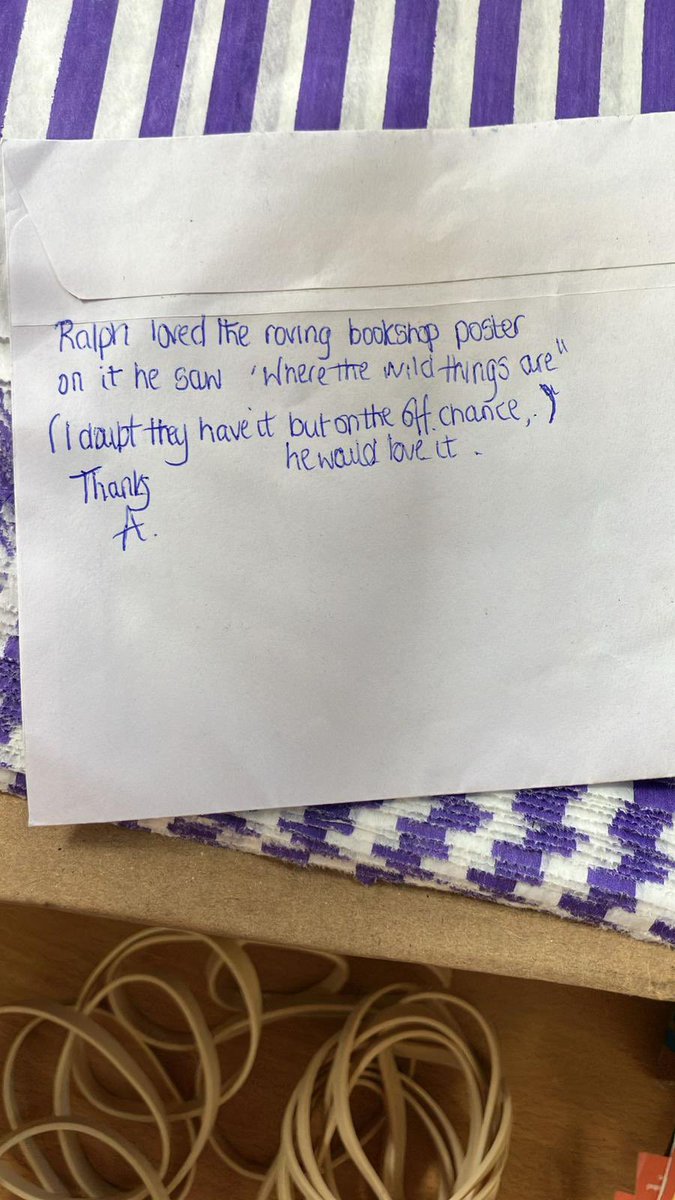 Ralph loved the roving bookshop poster
on it he saw 'Where the wild things are"
(I doubt they have it but on the off. chance,.)
he would love it.
Thanks
A.